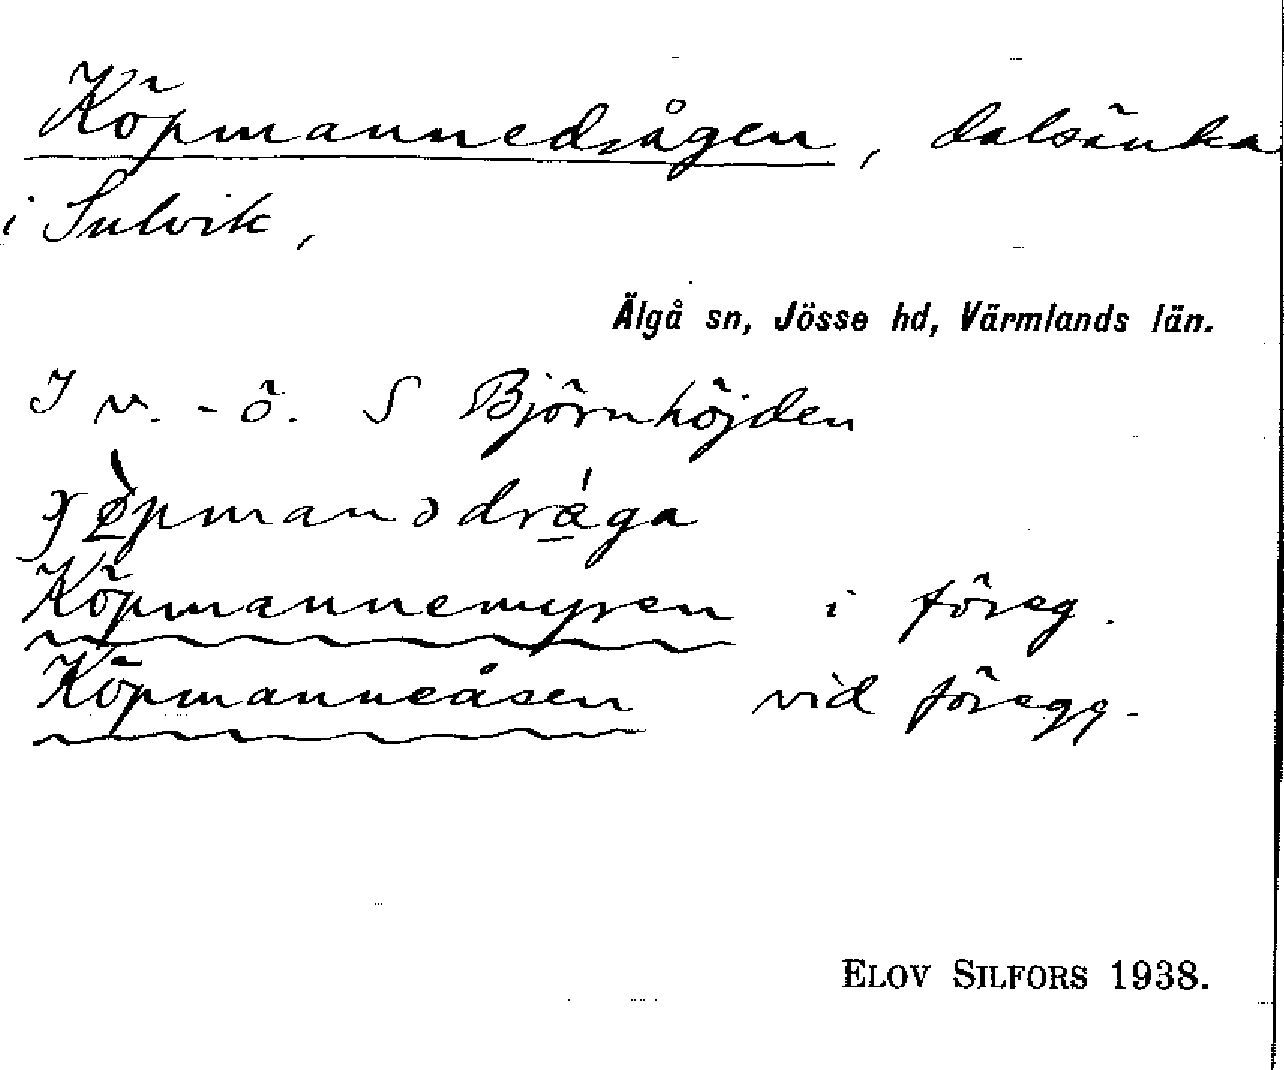 Köpmannedrågen, dalsänka
i Sulvik,
Älgå sn, Jösse hd, Värmlands län.
I v. - ö. S Björnhöjden
Köpmannemyren i föreg.
Köpmanneåsen vidföregg.
ELOV SILFORS 1938.